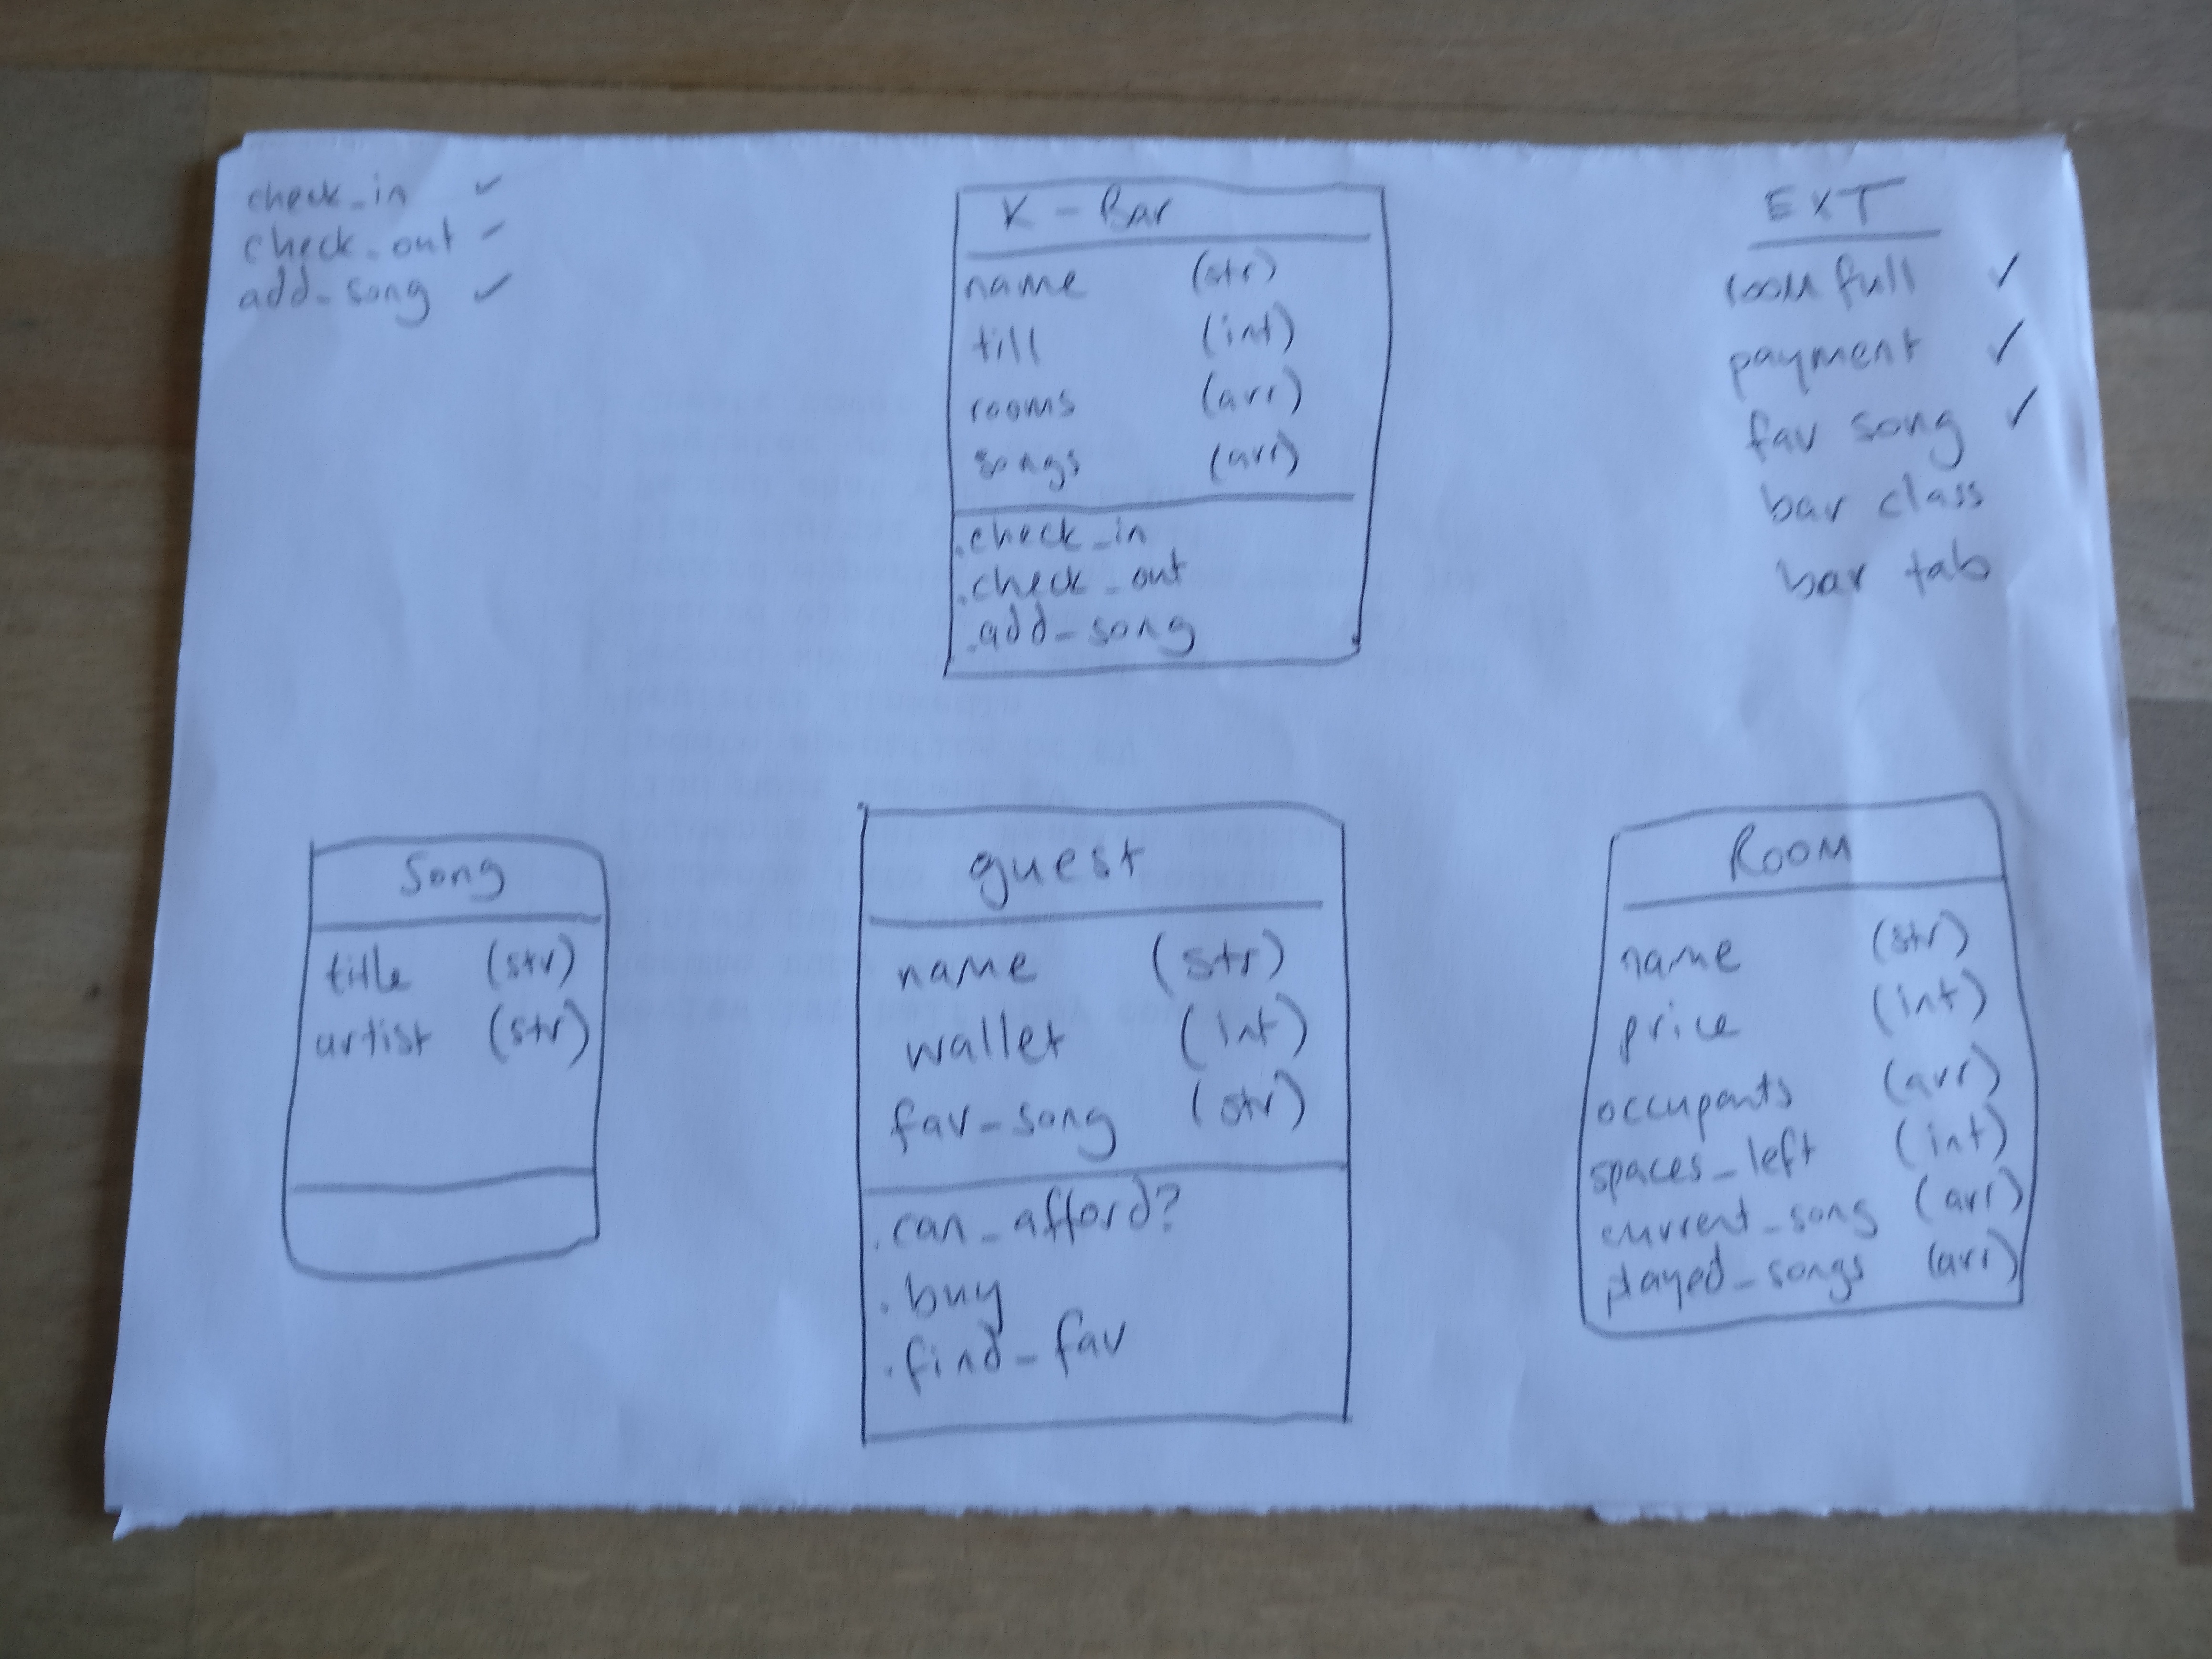 check_in ✓
check_out ✓
add_song ✓
K - Bar
name (str)
till (int)
rooms (arr)
songs (arr)
.check_in
.check_out
.add_song
EXT
room full ✓
payment ✓
fav song ✓
bar class
bar tab
Song
title (str)
artist (str)
guest
name (str)
wallet (int)
fav_song (str)
.can_afford?
.buy
.find_fav
ROOM
name (str)
price (int)
occupants (arr)
spaces_left (int)
current_song (arr)
played_songs (arr)